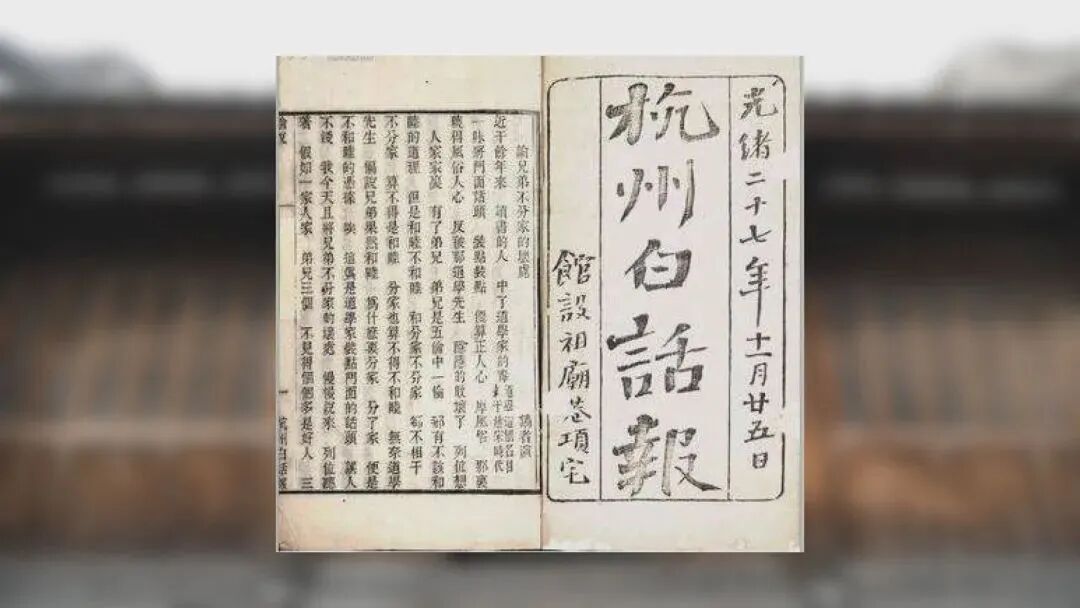 光緒二十七年十一月廿五日
杭州白話報
館設祖廟巷項宅
論兄弟不分家的壞處 講者演
近千餘年來 讀書的人 中了道學家的毒 道學這個名目 趙宋時代
一味將門面話頭 裝點裝點 便算正人心 厚風俗 那裏
曉得風俗人心 反被那道學先生 陰陰的敗壞了 列位想
人家家裏 有了弟兄 弟兄是五倫中一倫 那有不該和
睦的道理 但是和睦不和睦 和分家不分家 卻不相干
不分家 算不得是和睦 分家也算不得不和睦 無奈道學
先生 偏說兄弟果然和睦 爲什麽要分家 分了家 便是
不和睦的憑據 唉 這眞是道學家裝點門面的話頭 誤人
不淺 我今天且將兄弟不分家的壞處 慢慢說來 列位聽
著 假如一家人家 弟兄三個 不見得個個多是好人 三
論說 一 杭州白話報